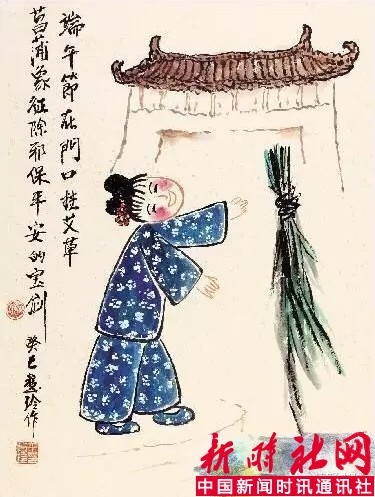 端午節在門口掛艾草
菖蒲象征除邪保平安的宝剑
癸巳惠玲作
新時社网
中国新闻时讯通讯社